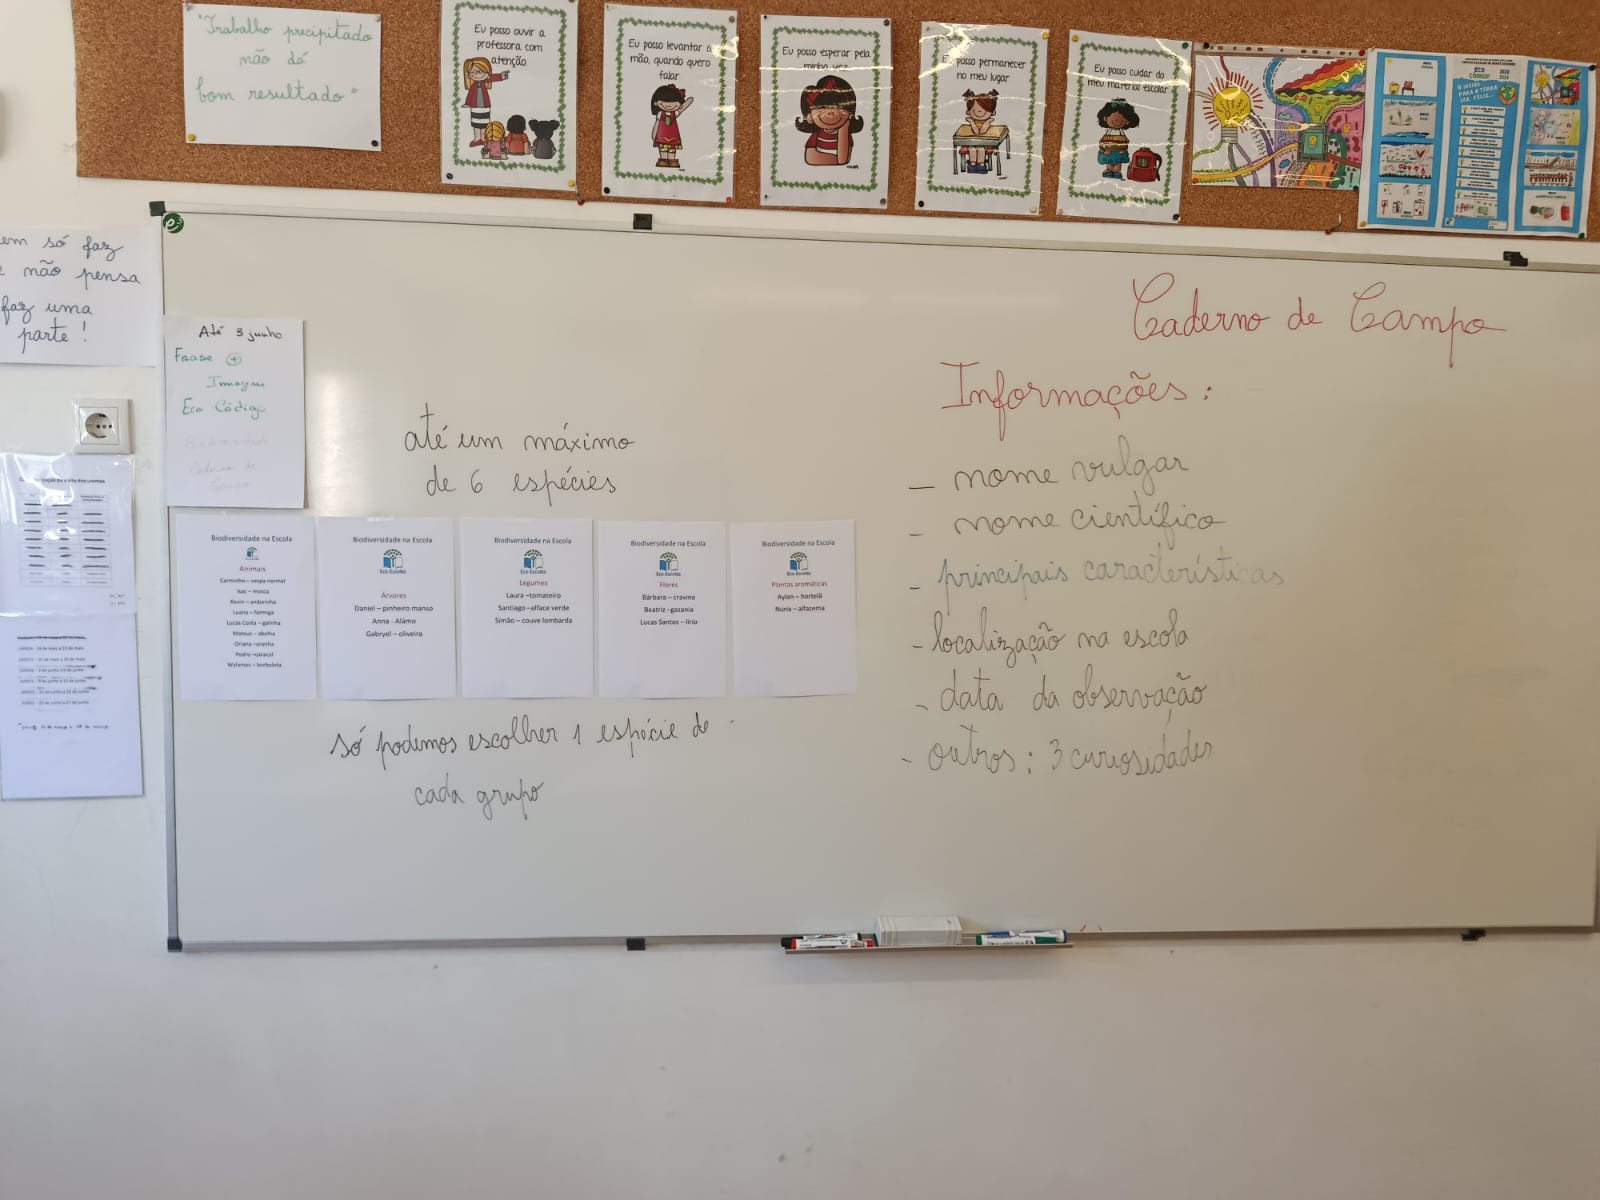 "Trabalho precipitado
não dá
bom resultado"
Eu posso ouvir a
professora com
atenção
Eu posso levantar a
mão, quando quero
falar
Eu posso esperar pela
minha vez
Eu posso permanecer
no meu lugar
Eu posso cuidar do
meu material escolar
ECO
CÓDIGO!
em só faz
e não pensa
faz uma
parte!
Até 3 junho
Frase +
Imagem
Eco Código
Biodiversidade
Caderno de
Campo
até um máximo
de 6 espécies
Biodiversidade na Escola
Animais
Carminho – vespa normal
Isac – mosca
Kevin – andorinha
Luana – formiga
Lucas Costa – galinha
Mateus – abelha
Oriana – aranha
Pedro – caracol
Wylames – borboleta
Biodiversidade na Escola
Eco-Escolas
Árvores
Daniel – pinheiro manso
Anna - Alámo
Gabryel – oliveira
Biodiversidade na Escola
Eco-Escolas
Legumes
Laura –tomateiro
Santiago –alface verde
Simão – couve lombarda
Biodiversidade na Escola
Eco-Escolas
Flores
Bárbara – cravina
Beatriz –gazania
Lucas Santos – lírio
Biodiversidade na Escola
Eco-Escolas
Plantas aromáticas
Aylan – hortelã
Núria – alfazema
só podemos escolher 1 espécie de
cada grupo
Caderno de Campo
Informações:
- nome vulgar
- nome científico
- principais características
- localização na escola
- data da observação
- outros: 3 curiosidades